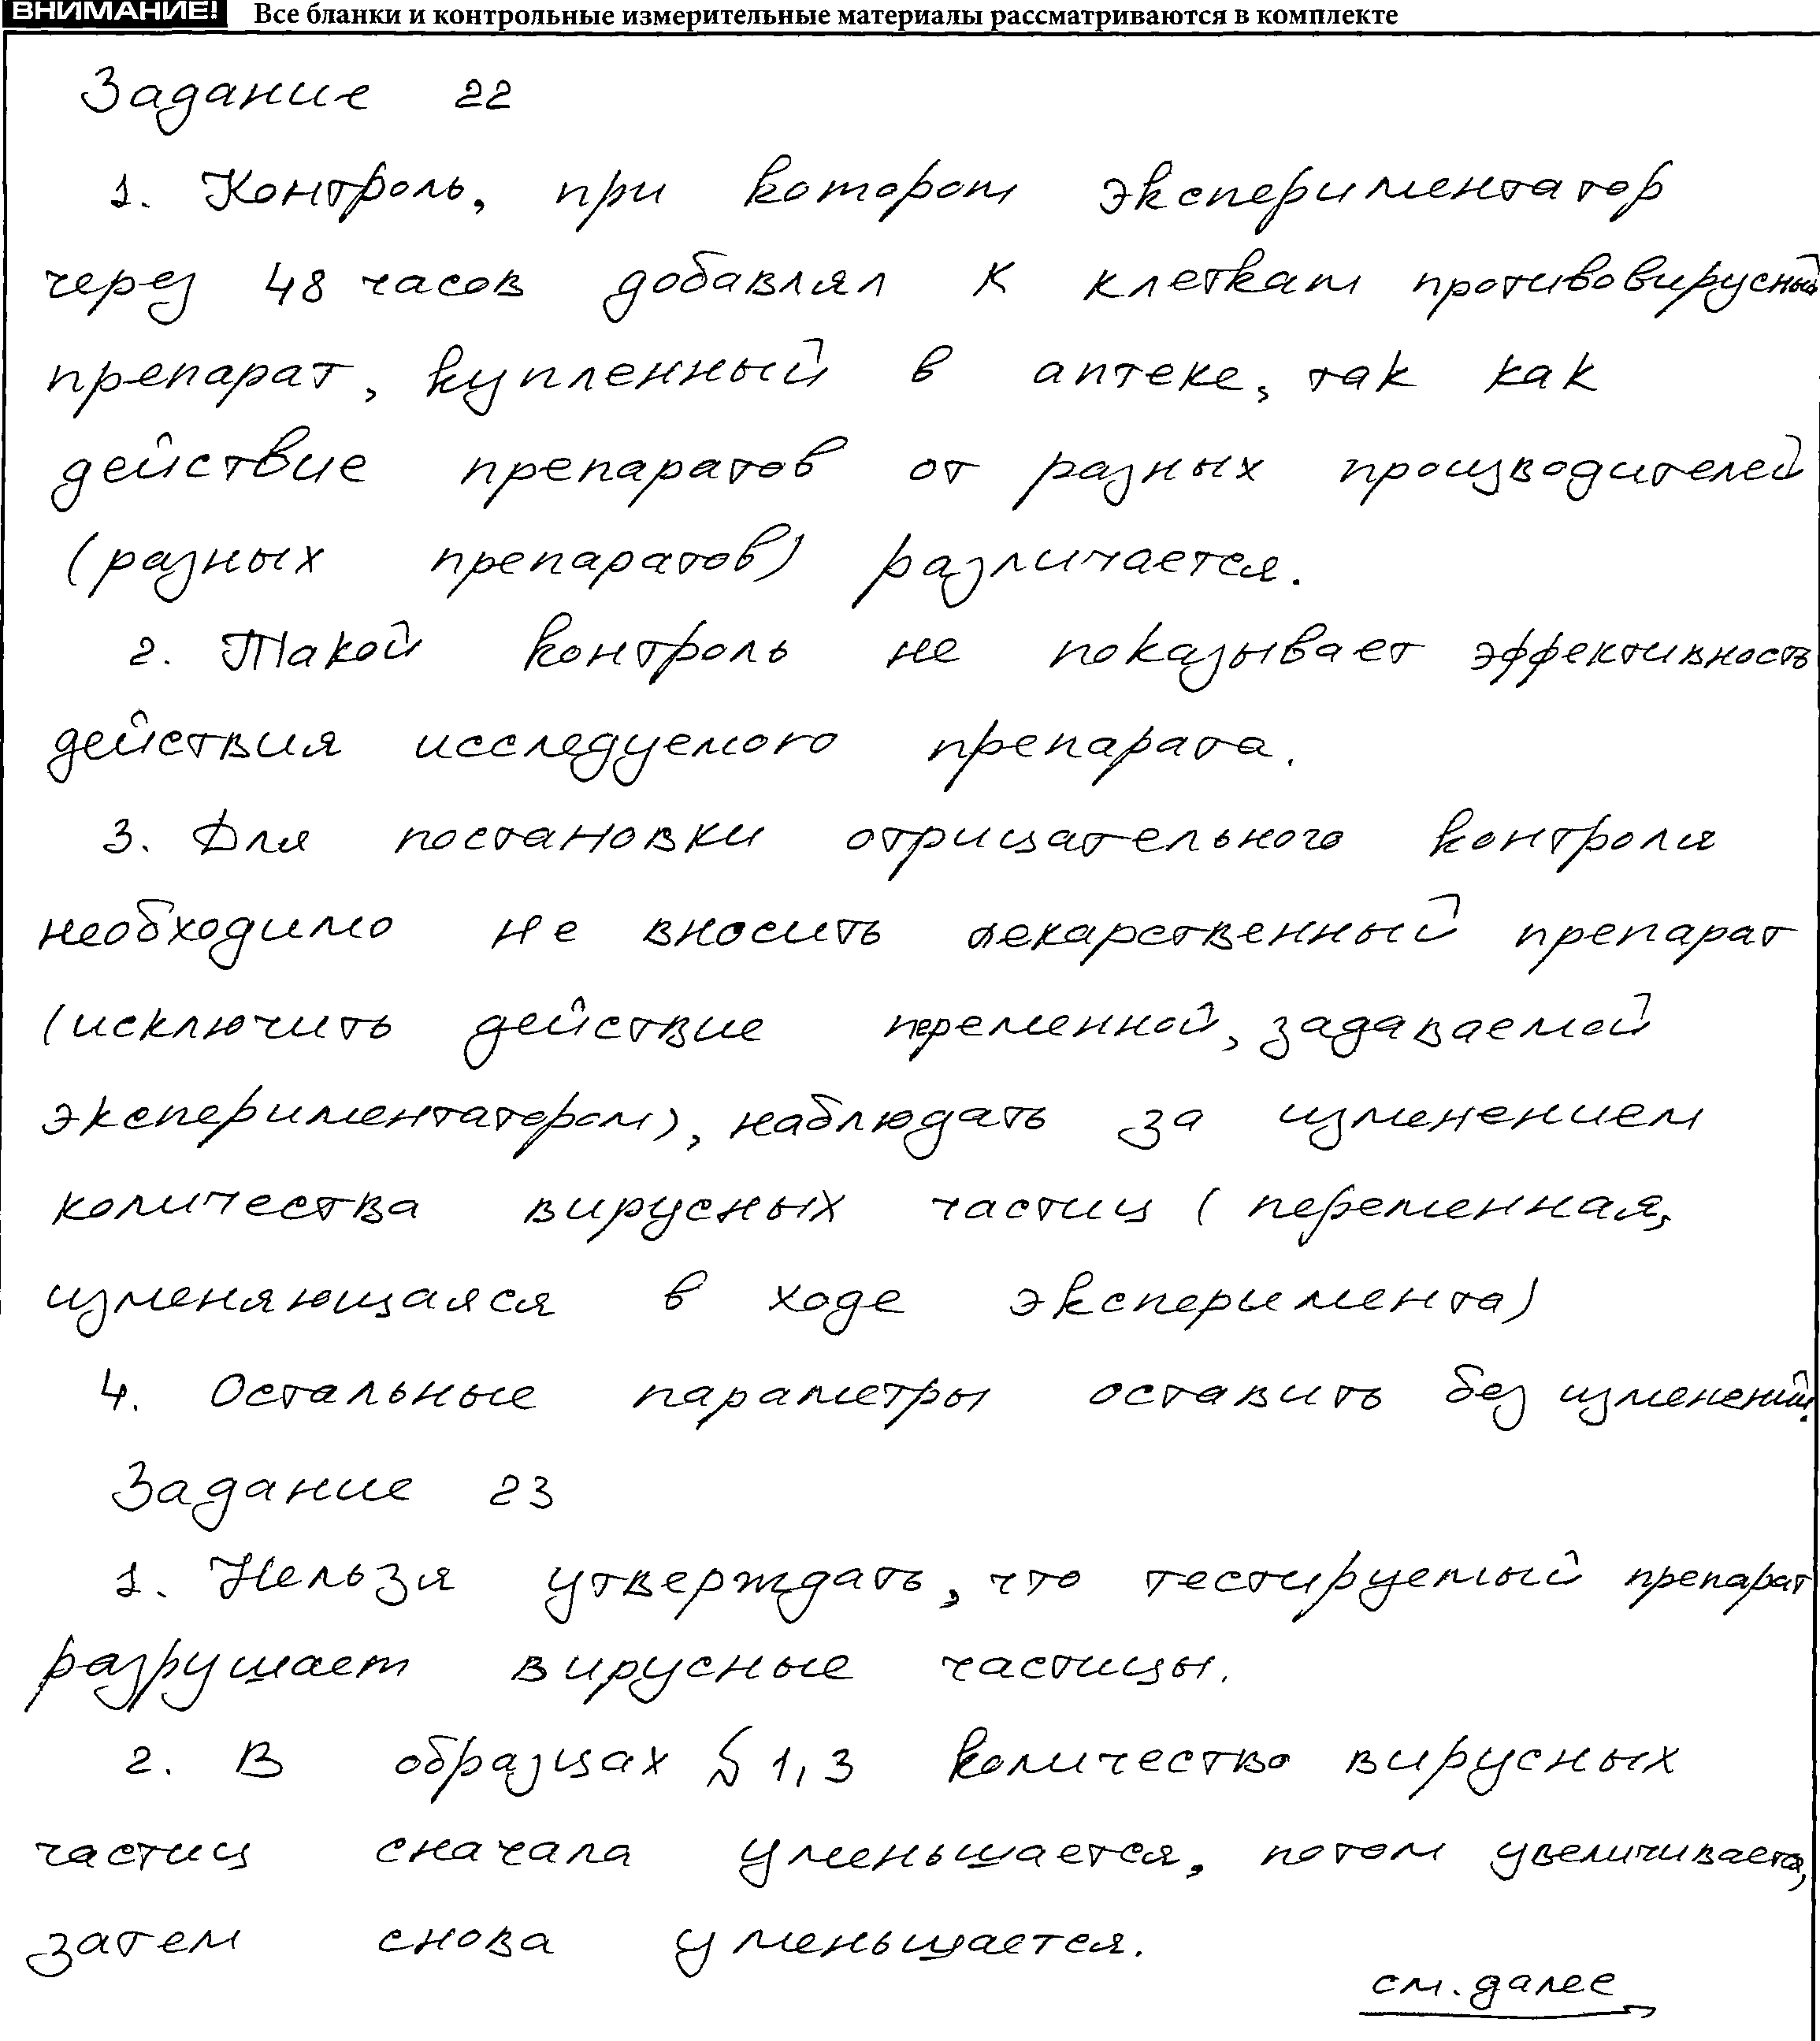 ВНИМАНИЕ! Все бланки и контрольные измерительные материалы рассматриваются в комплекте
Задание 22
1. Контроль, при котором экспериментатор
через 48 часов добавлял к клеткам противовирусный
препарат, купленный в аптеке, так как
действие препаратов от разных производителей
(разных препаратов) различается.
2. Такой контроль не показывает эффективность
действия исследуемого препарата.
3. Для постановки отрицательного контроля
необходимо не вносить лекарственный препарат
(исключить действие переменной, задаваемой
экспериментатором), наблюдать за изменением
количества вирусных частиц (переменная,
изменяющаяся в ходе эксперимента)
4. Остальные параметры оставить без изменений.
Задание 23
1. Нельзя утверждать, что тестируемый препарат
разрушает вирусные частицы.
2. В образцах № 1, 3 количество вирусных
частиц сначала уменьшается, потом увеличивается,
затем снова уменьшается.
см. далее